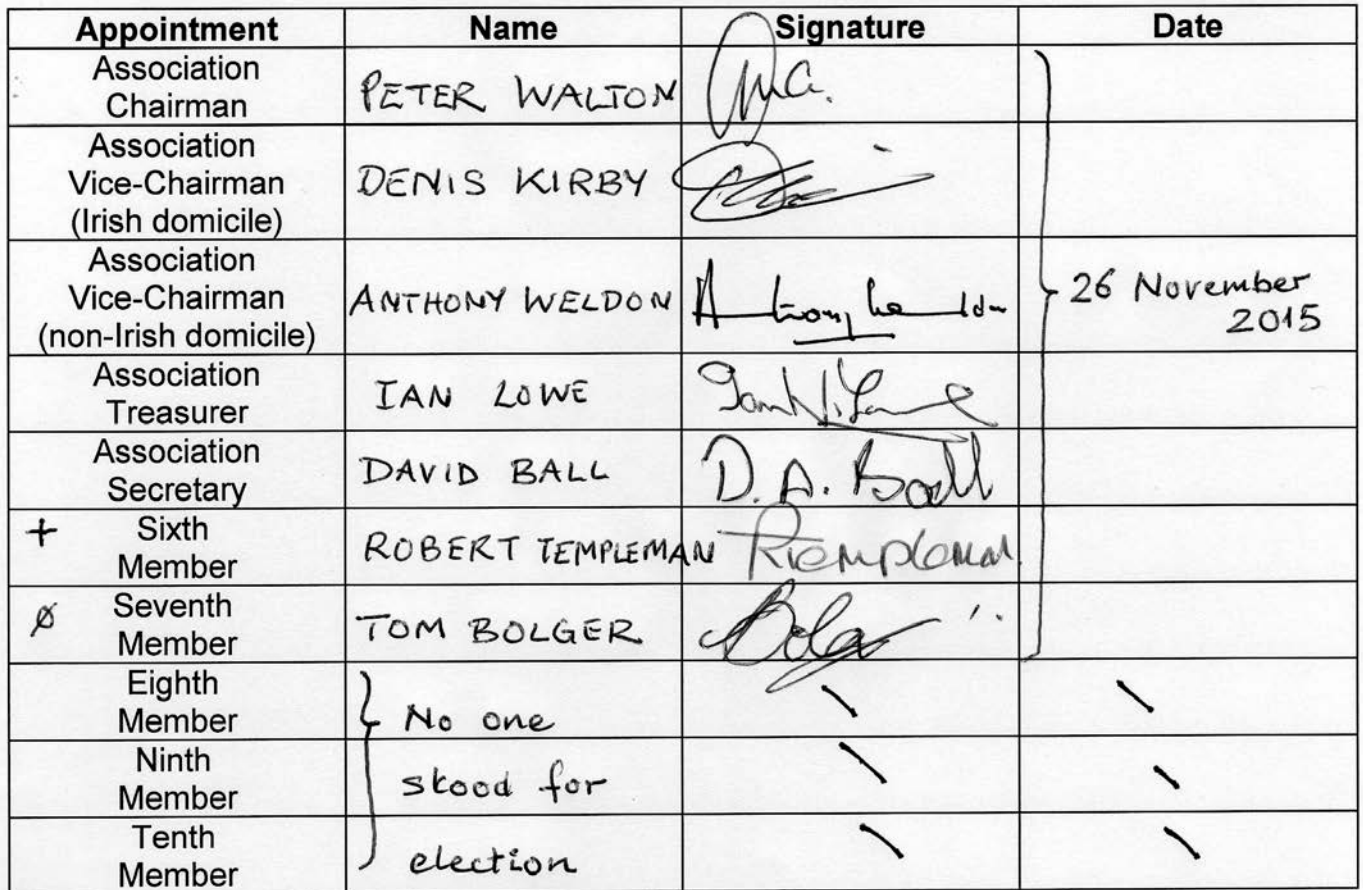 Appointment Name Signature Date
Association
Chairman
PETER WALTON
Association
Vice-Chairman
(Irish domicile)
DENIS KIRBY
Association
Vice-Chairman
(non-Irish domicile)
ANTHONY WELDON
26 November
2015
Association
Treasurer
IAN LOWE
Association
Secretary
DAVID BALL D. A. Ball
+ Sixth
Member
ROBERT TEMPLEMAN RTempleman
ø Seventh
Member
TOM BOLGER
Eighth
Member
No one
Ninth
Member
stood for
Tenth
Member
election